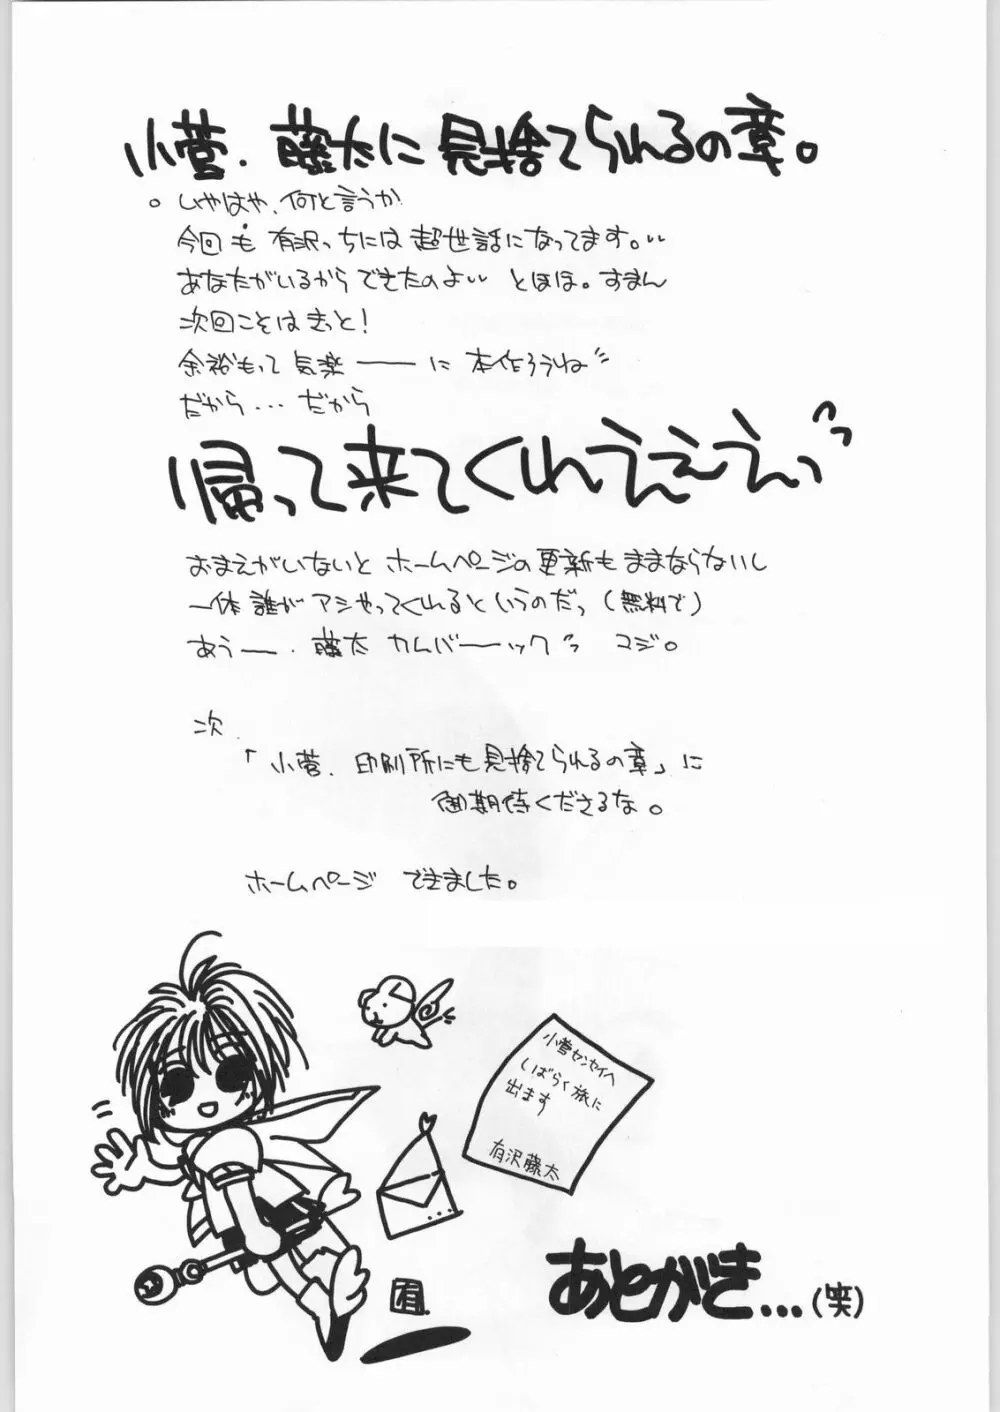 小菅、藤太に見捨てられるの章。
。いやはや、何と言うか
今回も 有沢っちには 超世話になってます。、、
あなたがいるからできたのよ、、 とほほ。すまん
次回こそは きっと!
余裕もって 気楽 ――に 本作ろうね
だから... だから
帰って来てくれえええっ
おまえがいないと ホームページの更新も ままならないし
一体 誰が アシやってくれるというのだっ(無料で)
あうー、 藤太 カムバーック コジ。
次
「小菅、印刷所にも見捨てられるの章」に
御期待くださるな。
ホームページ できました。
小菅センセイへ
しばらく旅に
出ます
有沢藤太
有
あとがき...(笑)